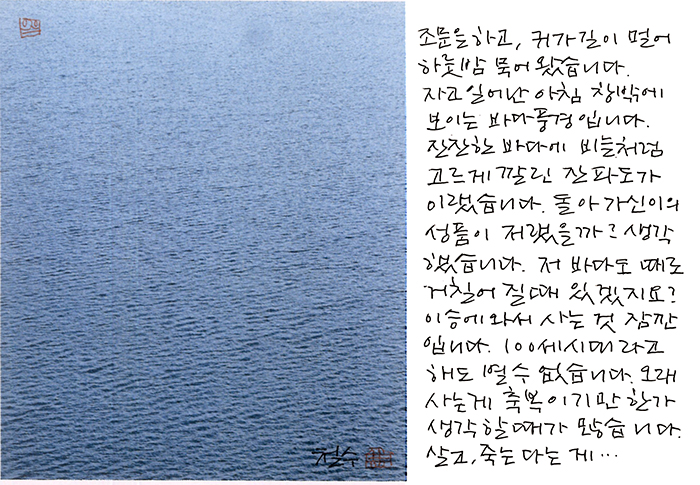 조문을하고, 귀가길이 멀어
하룻밤 묵어 왔습니다.
자고일어난 아침 창밖에
보이는 바다풍경입니다.
잔잔한 바다에 비늘처럼
고르게 깔린 잔파도가
이랬습니다. 돌아가신이의
성품이 저랬을까? 생각
했습니다. 저 바다도 때로
거칠어 질때 있겠지요?
이승에와서 사는 것 잠깐
입니다. 100세시대라고
해도 별수 없습니다. 오래
사는게 축복이기만 한가
생각할때가 많습니다.
살고, 죽는다는 게…
철수